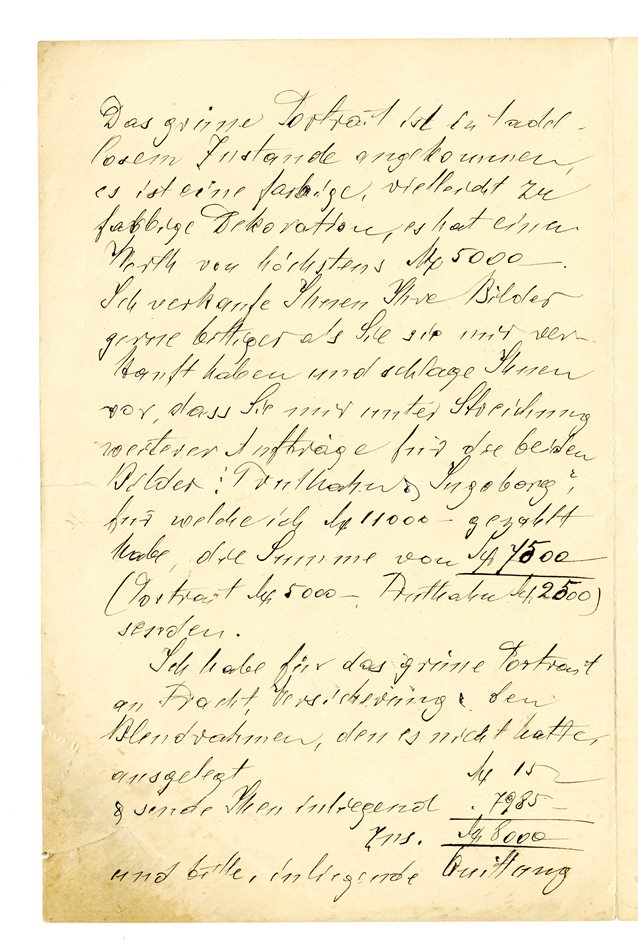 Das grüne Portrait ist in tadel-
losem Zustande angekommen,
es ist eine farbige, vielleicht zu
farbige Dekoration, es hat einen
Werth von höchstens M 5000 –.
Ich verkaufe Ihnen Ihre Bilder
gerne billiger als Sie sie mir ver-
kauft haben und schlage Ihnen
vor, dass Sie mir unter Streichung
weiterer Aufträge für die beiden
Bilder: "Truthahn & Ingeborg",
für welche ich M 11000 – gezahlt
habe, die Summe von M 7500
(Portrait M 5000 –, Truthahn M 2500)
senden.
Ich habe für das grüne Portrait
an Fracht, Versicherung & den
Blendrahmen, den es nicht hatte,
ausgelegt M 15 –
& sende Ihnen inliegend . 7985 –
Zus. M 8000
und bitte, inliegende Quittung